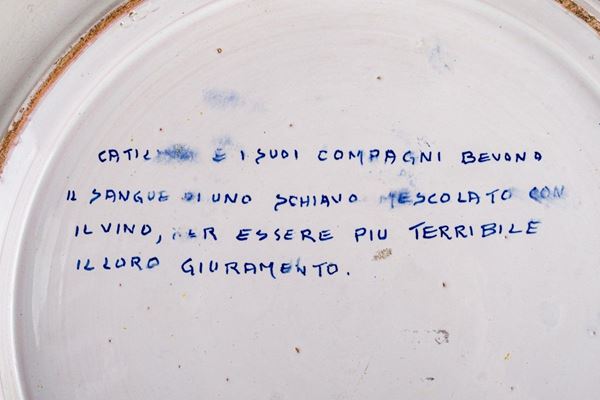 CATILINA E I SUOI COMPAGNI BEVONO
IL SANGUE DI UNO SCHIAVO MESCOLATO CON
IL VINO, PER ESSERE PIU TERRIBILE
IL LORO GIURAMENTO.